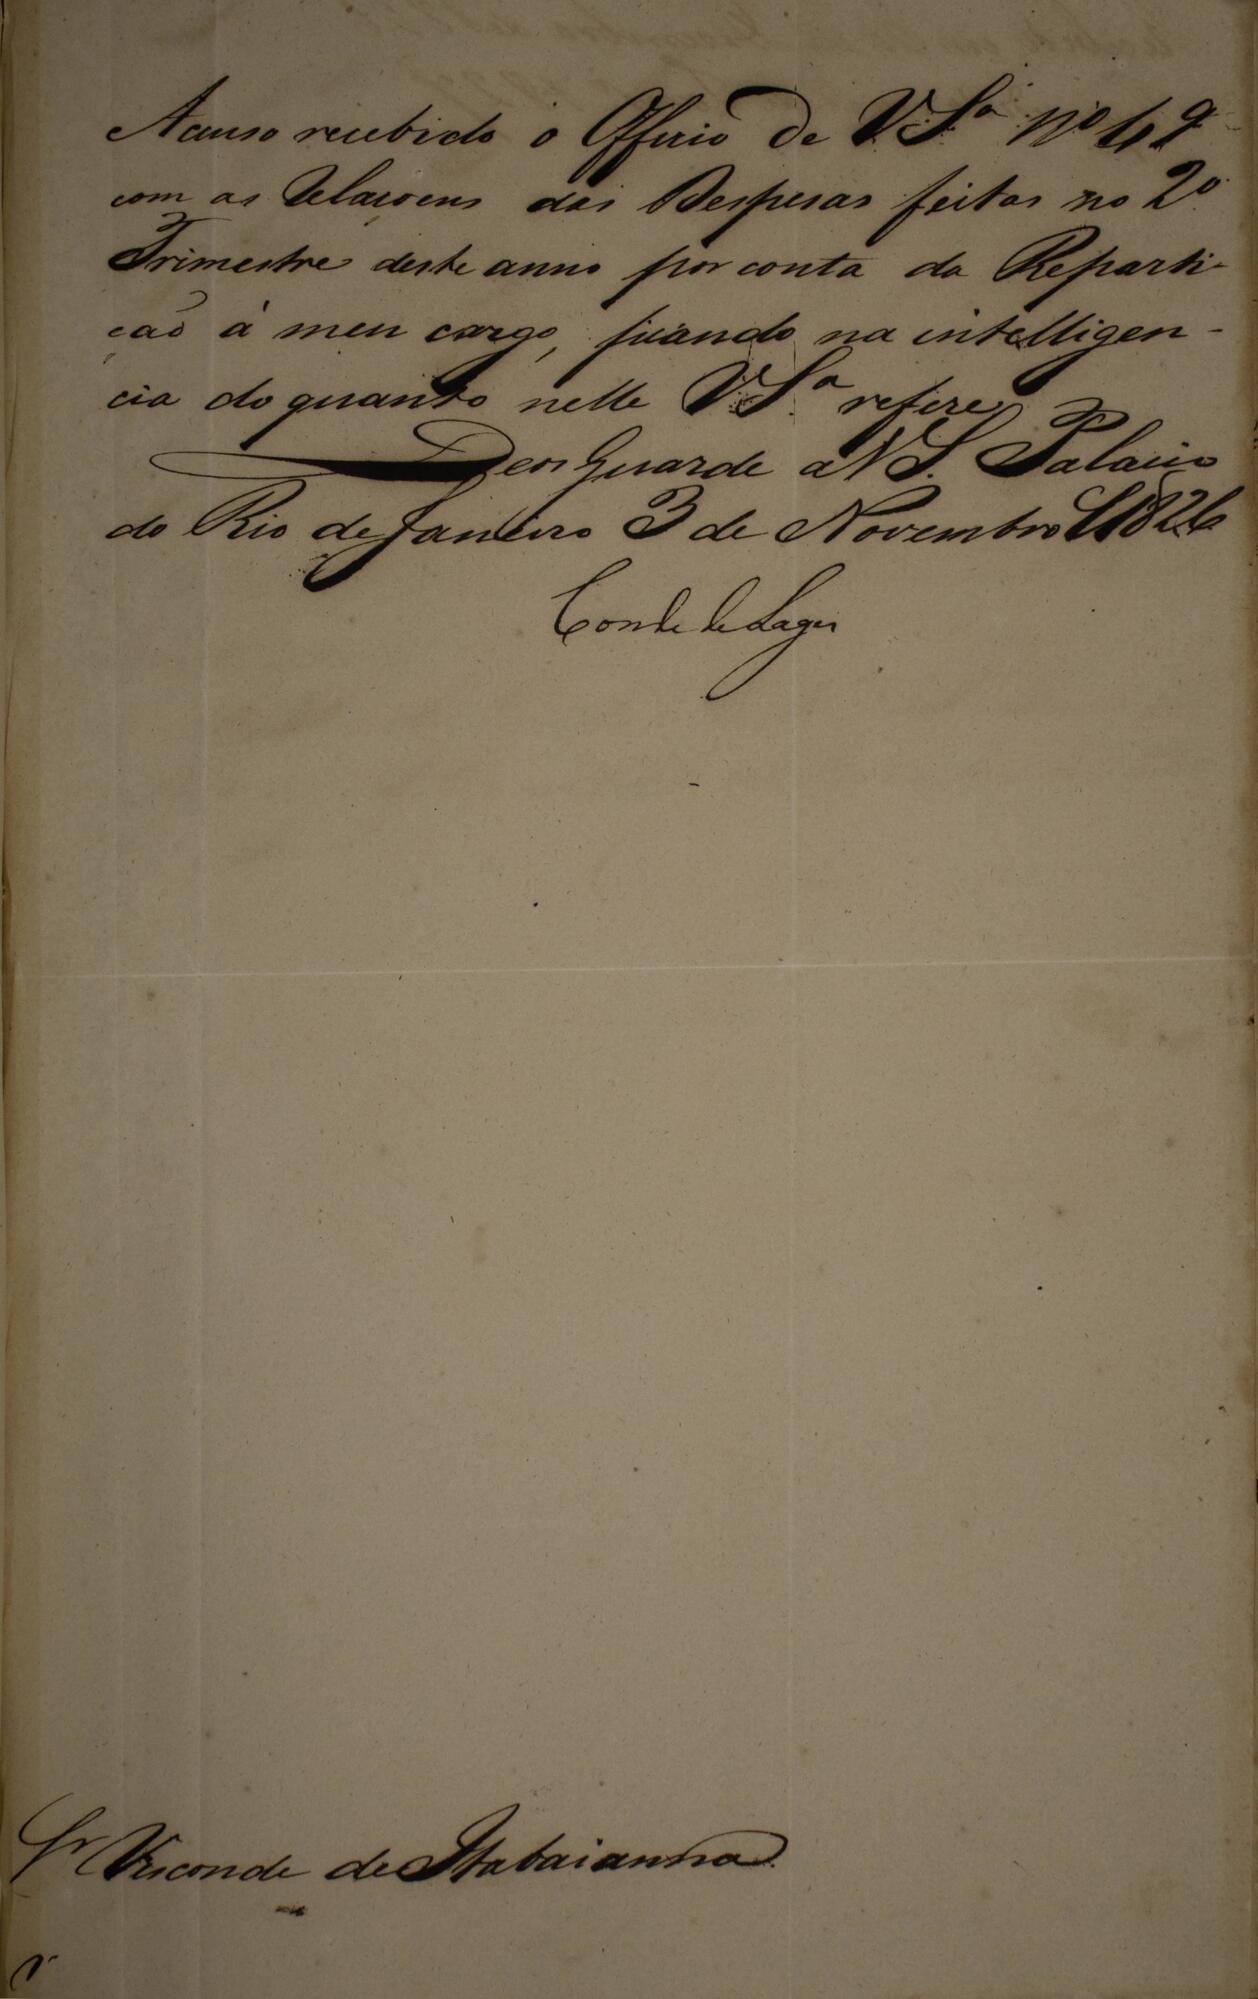 Accuso recebido o Officio de V Sª Nº 49
com as Relaçoens das Despesas feitas no 2º
Trimestre deste anno por conta da Reparti-
ção á meu cargo, ficando na intelligen-
cia do quanto nelle V Sª refere
Deos Guarde a V S. Palacio
do Rio de Janeiro 3 de Novembro 1826
Conde de Lages
Sr Visconde de Itabaianna